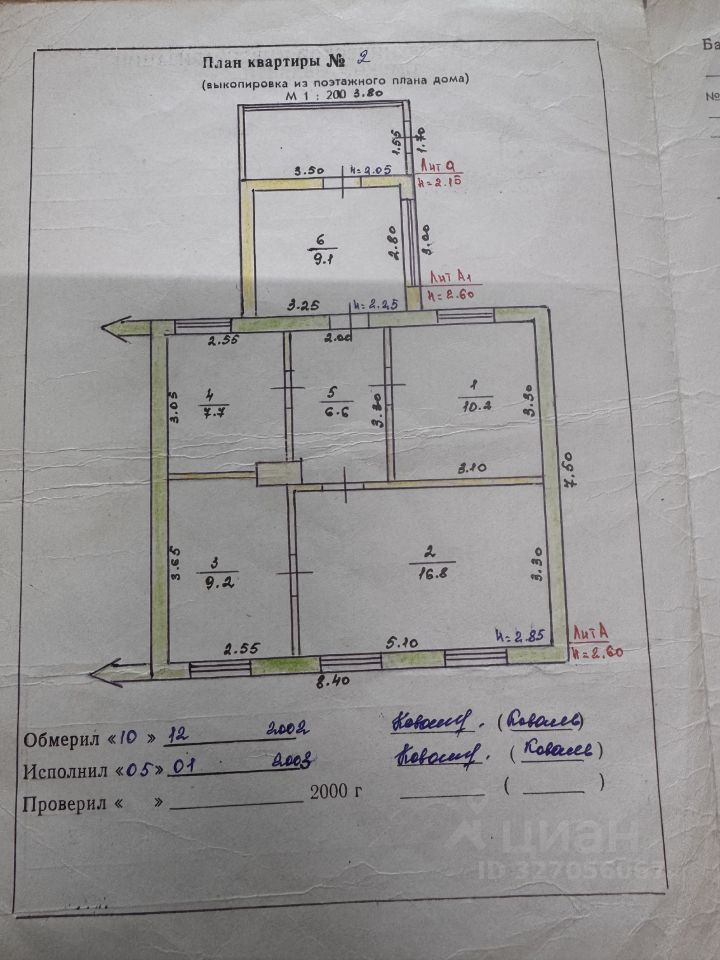 План квартиры № 2
(выкопировка из поэтажного плана дома)
М 1 : 200 3.80
Ба
№
1.55
1.70
3.50
h=2.05
Лит а
h=2.15
6
9.1
2.80
3.00
Лит А1
h=2.60
3.25
h=2.25
2.55
2.00
4
7.7
3.05
5
6.6
3.30
1
10.2
3.30
3.10
7.50
3
9.2
3.65
2
16.8
3.30
2.55
5.10
h=2.85
Лит А
h=2.60
8.40
Обмерил «10 » 12 2002 (Коваль)
Исполнил «05» 01 2003 (Коваль)
Проверил « » 2000 г ( )
циан
ID 327056067